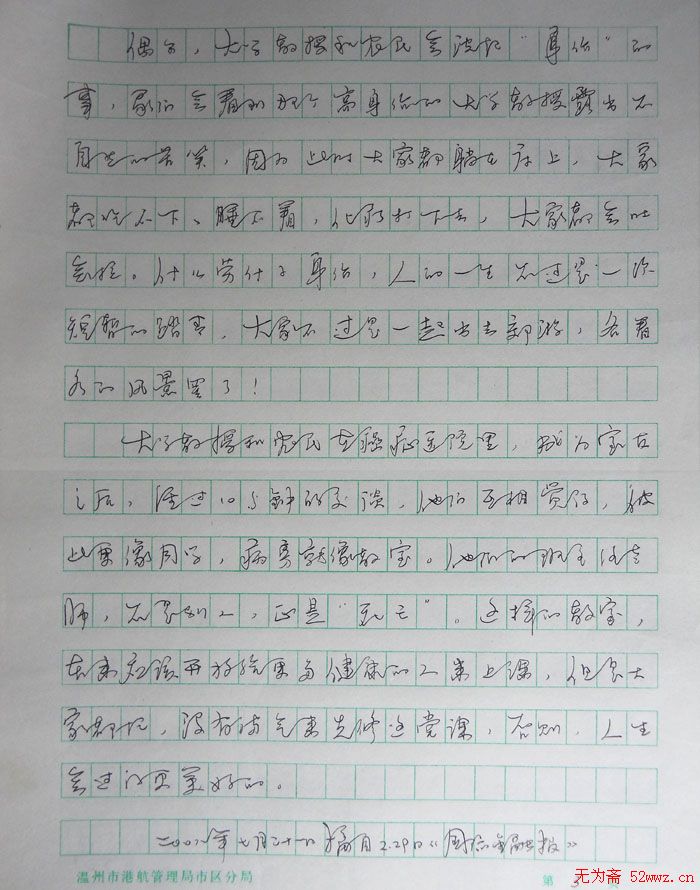 偶尔，大学教授和农民会谈起“身份”的
事，家伯会看到那个高身份的大学教授露出不
自然的苦笑，因为此时大家都躺在床上，大家
都吃不下、睡不着，化疗打下去，大家都会吐
会拉。什么劳什子身份，人的一生不过是一次
短暂的踏青，大家不过是一起出去郊游，各看
各的风景罢了！
大学教授和农民在癌症医院里，成为室友
之后，经过10多钟的交谈，他们互相赏识，彼
此更像同学，病房就像教室。他们的班主任老
师，不是别人，正是“死亡”。这样的教室，
在未应该开放给更多健康的人来上课，但是大
家都忙，没有福气来先修这堂课，否则，人生
会过得更美好的。
二00八年七月二十一日摘自2.29日《周末金融报》
温州市港航管理局市区分局
第
无为斋 52wwz.cn